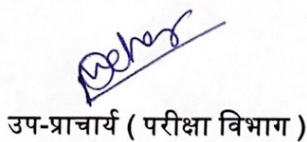 उप-प्राचार्य ( परीक्षा विभाग )